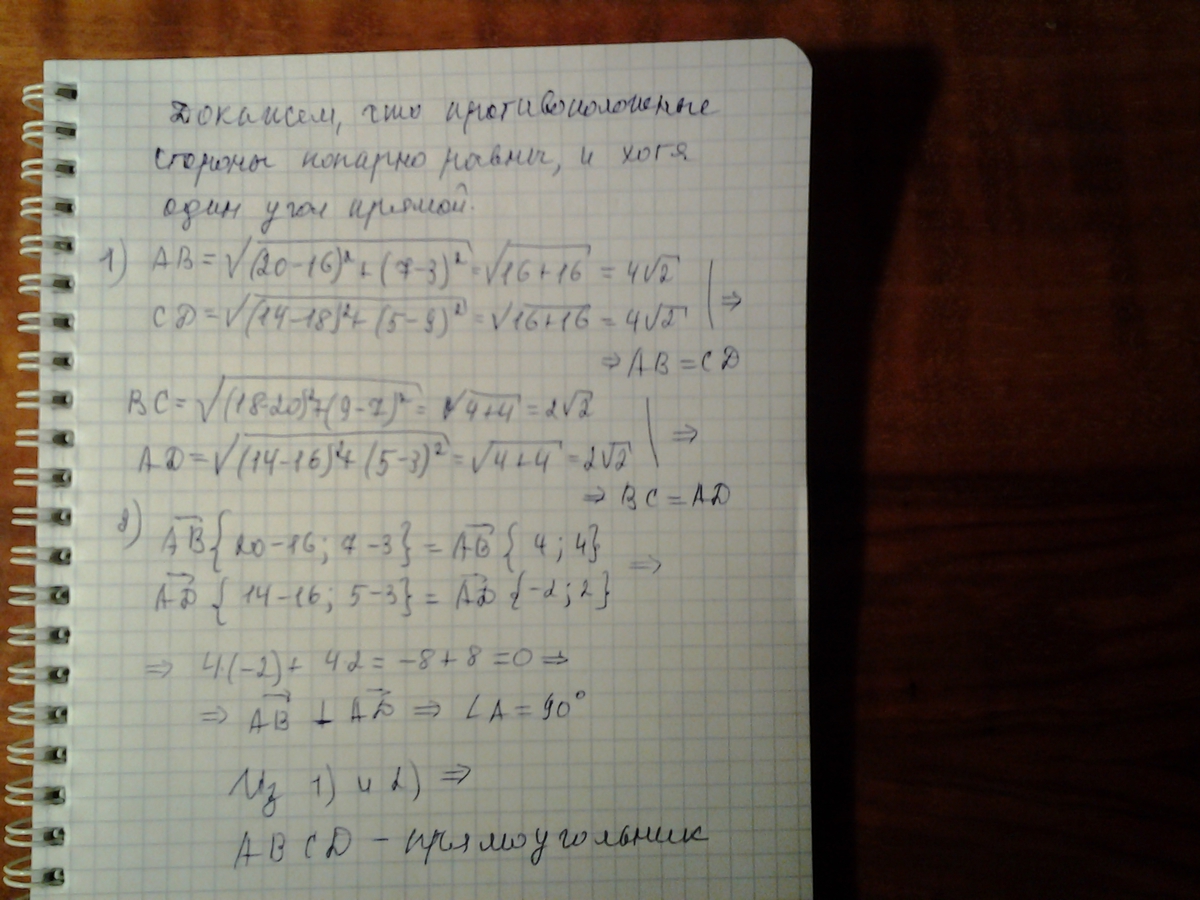 Докажем, что противоположные
стороны попарно равны, и хотя
один угол прямой.
1) AB = √(20-16)²+(7-3)² = √16+16 = 4√2 | ⇒
CD = √(14-18)²+(5-9)² = √16+16 = 4√2
⇒ AB = CD
BC = √(18-20)²+(9-7)² = √4+4 = 2√2 | ⇒
AD = √(14-16)²+(5-3)² = √4+4 = 2√2
⇒ BC = AD
2) AB{20-16; 7-3} = AB{4; 4}
AD{14-16; 5-3} = AD{-2; 2} ⇒
⇒ 4·(-2)+ 4·2 = -8+8=0 ⇒
⇒ AB ⊥ AD ⇒ ∠A = 90°
Из 1) и 2) ⇒
ABCD - прямоугольник